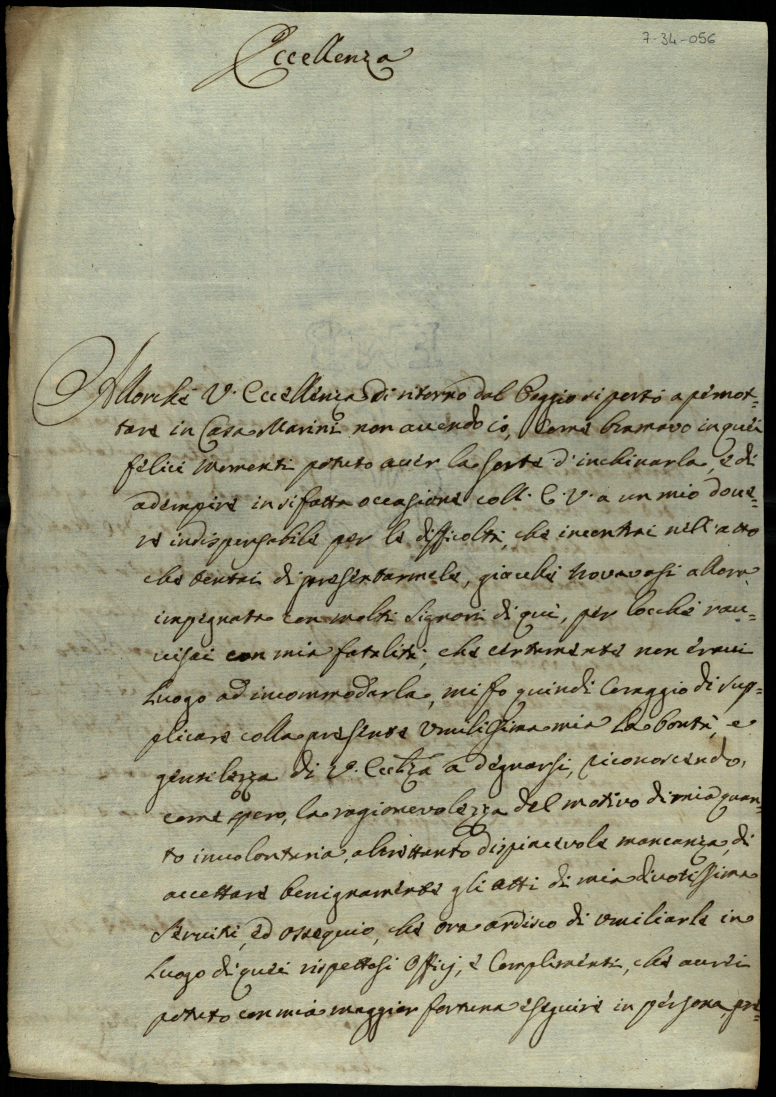 7-34-056
Eccellenza
Allorche V. Eccellenza di ritorno dal Poggio si portò a pernot=
tare in Casa Marini non avendo io, come bramavo in quei
felici momenti potuto aver la sorte d'inchinarla, e di
adempire in sifatta occasione coll' E. V. a un mio dove=
re indispensabile per le difficoltà, che incontrai nell'atto
che tentai di presentarmele, giacchè trovavasi allora
impegnata con molti Signori di quì, per locchè rav=
visai con mia fatalità, che certamente non eravi
luogo ad incommodarla, mi fo quindi coraggio di sup=
plicare colla presente umilissima mia la bontà, e
gentilezza di V. Ecclza a degnarsi, riconoscendo,
come spero, la ragionevolezza del motivo di mia quan=
to involontaria, altrettanto dispiacevole mancanza, di
accettare benignamente gli atti di mia divotissima
servitù, ed ossequio, che ora ardisco di umiliarle in
luogo di quei rispettosi officj, e complimenti, che avrei
potuto con mia maggior fortuna eseguire in persona, pre=